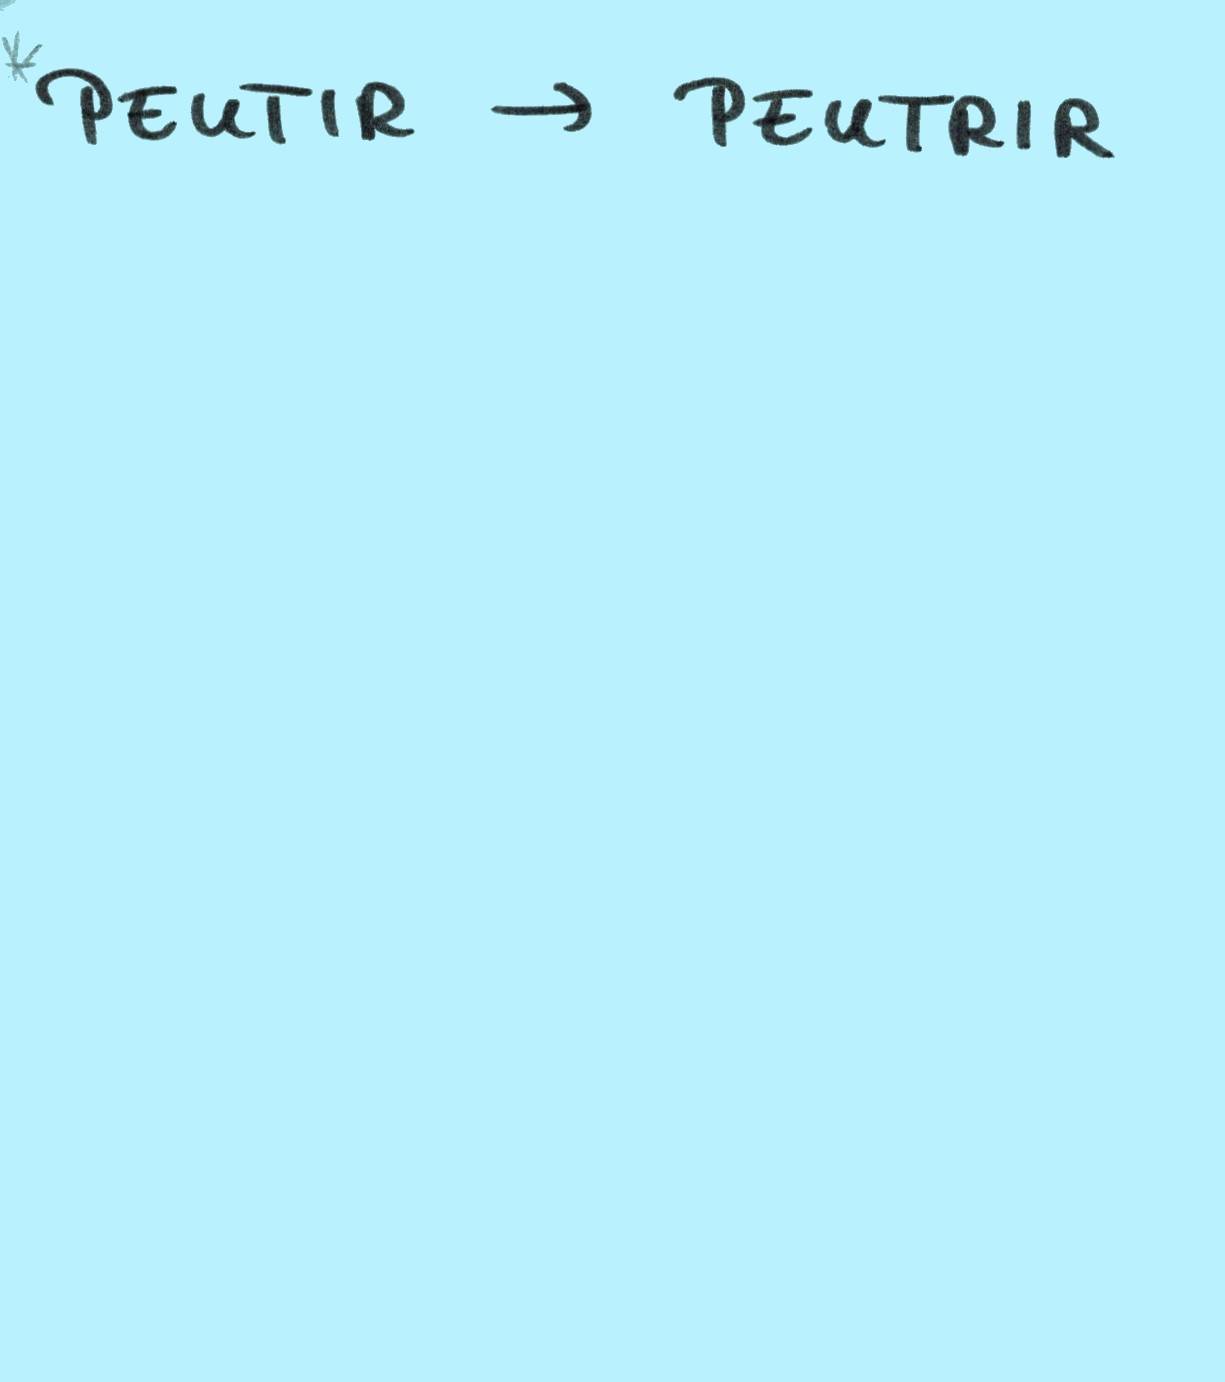 *PEUTIR → PEUTRIR